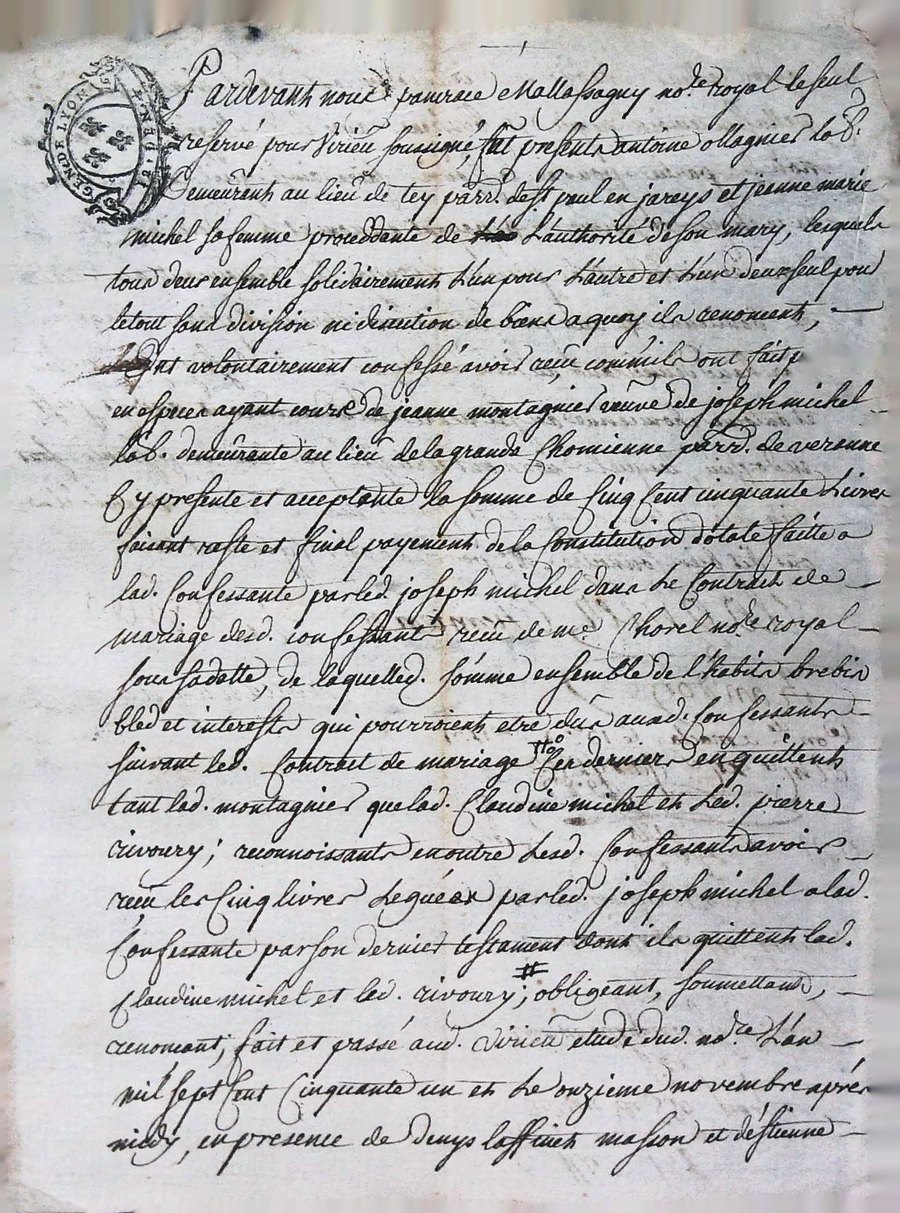 GEN. DE LYON
Pardevant nous pancrace Mallassagny no.re royal le seul
reservé pour Virieu soussigné, fut presents antoine ollagnier lab.r
demeurant au lieu de tey parr. de st paul en jareys et jeanne marie
michel sa femme proceddante de L'authorité de son mary, lesquels
tous deux ensemble solidairement L'un pour L'autre et L'un deux seul pour
le tout sans division ni direction de biens a quoy ils renoncent,
ont volontairement confessé avoir reçu comm'ils ont fait
en especes ayant cours de jeanne montagnier veuve de joseph michel
lab. demeurante au lieu de la grande Chomienne parr. de veranne
Cy presente et acceptante la somme de Cinq Cent cinquante Livres
faisant reste et final payement de la Constitution dotale faitte a
lad. Confessante par led. joseph michel dans Le Contract de
mariage desd. confessants reçu de me. Chorel no.re royal
sous sa datte, de laquelle d. somme ensemble de l'habit, brebis
bled et interests qui pourroient etre dus auxd. Confessants
suivant led. Contrat de mariage Ces derniers en quittent
tant lad. montagnier que lad. Claudine michel et Led. pierre
rivoury; reconnoissants en outre Lesd. Confessants avoir
reçu les Cinq livres Leguées par led. joseph michel a lad.
Confessante par son dernier testament dont ils quittent lad.
Claudine michel et led. rivoury; # obligeant, soumettant,
renoncant, fait et passé aud. Virieu etude dud. no.re L'an
mil sept Cent Cinquante un et Le onzieme novembre après
midy, en presence de denys laffinet masson et d'éstienne